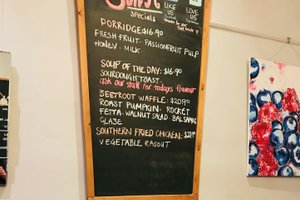 Specials
LIKE US
LOVE US
PORRIDGE $16.90
FRESH FRUIT · PASSIONFRUIT PULP
HONEY · MILK
SOUP OF THE DAY: $16.90
SOURDOUGH TOAST
ask our staff for todays flavour
BEETROOT WAFFLE: $20.90
ROAST PUMPKIN · ROCKET
FETTA · WALNUT SALAD BALSAMIC
GLAZE
SOUTHERN FRIED CHICKEN:
VEGETABLE RAGOUT